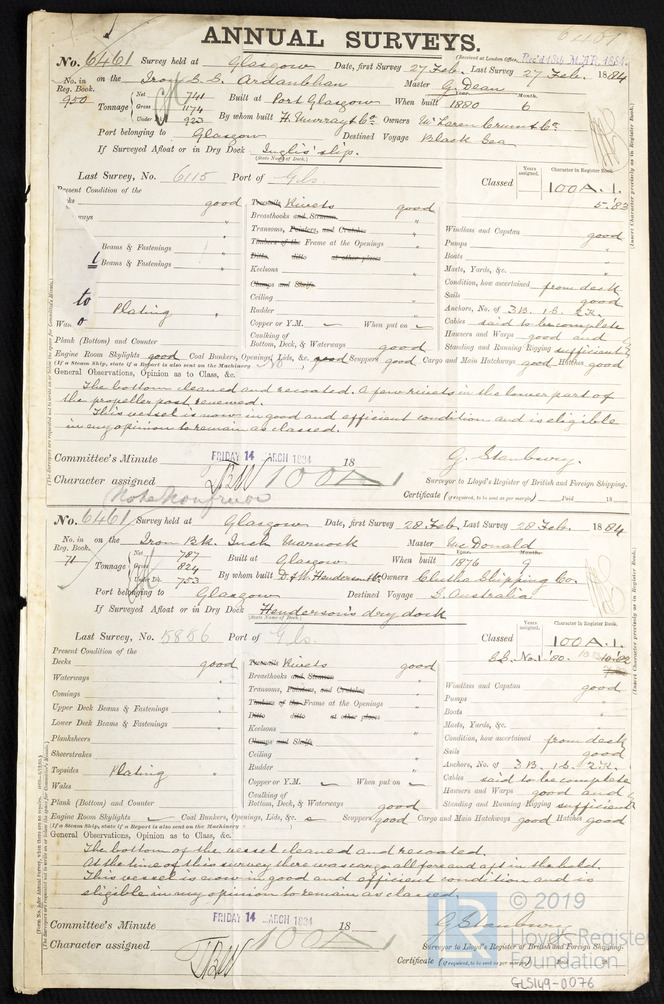 ANNUAL SURVEYS.
(Received at London Office, Rec'd 13th MAR. 1884.
No. 6461 Survey held at Glasgow Date, first Survey 27 Feb. Last Survey 27 Feb. 1884
No. in Reg. Book. 950 on the Iron S.S. Ardanbhan Master G. Dean
Tonnage Net 741 Gross 1174 Under Dk. Built at Port Glasgow When built Year. 1880 Month. 6
By whom built H. Murray & Co. Owners
Port belonging to Glasgow Destined Voyage Black Sea
If Surveyed Afloat or in Dry Dock Inglis' slip.
(State Name of Dock.)
Last Survey, No. 6115 Port of Gls. Classed Years assigned. Character in Register Book. 100 A. 1.
5.'83
(Insert Character precisely as in Register Book.)
Present Condition of the
good
Beams & Fastenings "
Beams & Fastenings "
to
Plating "
Plank (Bottom) and Counter
Treenails Rivets good
Breasthooks and Stemson "
Transoms, Pointers, and Crutches "
Timbers of the Frame at the Openings "
Ditto ditto at other places
Keelsons "
Clamps and Shelfs
Ceiling "
Rudder "
Copper or Y.M. When put on
Caulking of
Bottom, Deck, & Waterways good
Windlass and Capstan good
Pumps "
Boats "
Masts, Yards, &c. "
Condition, how ascertained from deck
Sails good
Anchors, No. of 3.B. 1.S. 2.K.
Cables said to be complete
Hawsers and Warps good and
Standing and Running Rigging sufficient
Engine Room Skylights good Coal Bunkers, Openings, Lids, &c. good Scuppers good Cargo and Main Hatchways good Hatches good
(If a Steam Ship, state if a Report is also sent on the Machinery No.)
General Observations, Opinion as to Class, &c.
The bottom cleaned and recoated. A few rivets in the lower part of
the propeller post renewed.
This vessel is now in good and efficient condition and is eligible
in my opinion to remain as classed.
Committee's Minute FRIDAY 14 MARCH 1884 18
G. Stanbury.
Character assigned 100A1
Surveyor to Lloyd's Register of British and Foreign Shipping.
Certificate (if required, to be sent as per margin) Paid 18
No. 6461 Survey held at Glasgow Date, first Survey 28 Feb. Last Survey 28 Feb. 1884
No. in Reg. Book. 71 on the Iron Bk. Inch Marnock Master Mc Donald
Tonnage Net 787 Gross 824 Under Dk. 753 Built at Glasgow When built Year. 1876 Month. 9
By whom built D. & W. Henderson & Co. Owners Clutha Shipping Co.
Port belonging to Glasgow Destined Voyage S. Australia
If Surveyed Afloat or in Dry Dock Henderson's dry dock
(State Name of Dock.)
Last Survey, No. 5856 Port of Gls. Classed Years assigned. Character in Register Book. 100 A. 1.
S.S. No. 1 '80. 10.'82
(Insert Character precisely as in Register Book.)
Present Condition of the
Decks good
Waterways "
Comings "
Upper Deck Beams & Fastenings "
Lower Deck Beams & Fastenings "
Planksheers
Sheerstrakes
Topsides Plating "
Wales
Plank (Bottom) and Counter
Treenails Rivets good
Breasthooks and Stemson "
Transoms, Pointers, and Crutches "
Timbers of the Frame at the Openings "
Ditto ditto at other places
Keelsons "
Clamps and Shelfs
Ceiling "
Rudder "
Copper or Y.M. When put on
Caulking of
Bottom, Deck, & Waterways good
Windlass and Capstan good
Pumps "
Boats "
Masts, Yards, &c. "
Condition, how ascertained from deck
Sails good
Anchors, No. of 3.B. 1.S. 2.K.
Cables said to be complete
Hawsers and Warps good and
Standing and Running Rigging sufficient
Engine Room Skylights Coal Bunkers, Openings, Lids, &c. Scuppers good Cargo and Main Hatchways good Hatches good
(If a Steam Ship, state if a Report is also sent on the Machinery )
General Observations, Opinion as to Class, &c.
The bottom of the vessel cleaned and recoated.
At the time of this survey there was cargo all fore and aft in the hold.
This vessel is now in good and efficient condition and is
eligible in my opinion to remain as classed.
Committee's Minute FRIDAY 14 MARCH 1884 18
G. Stanbury
Character assigned 100A1
Surveyor to Lloyd's Register of British and Foreign Shipping.
Certificate (if required, to be sent as per margin) Paid 18
© 2019
Lloyd's Register
Foundation
GLS149-0076